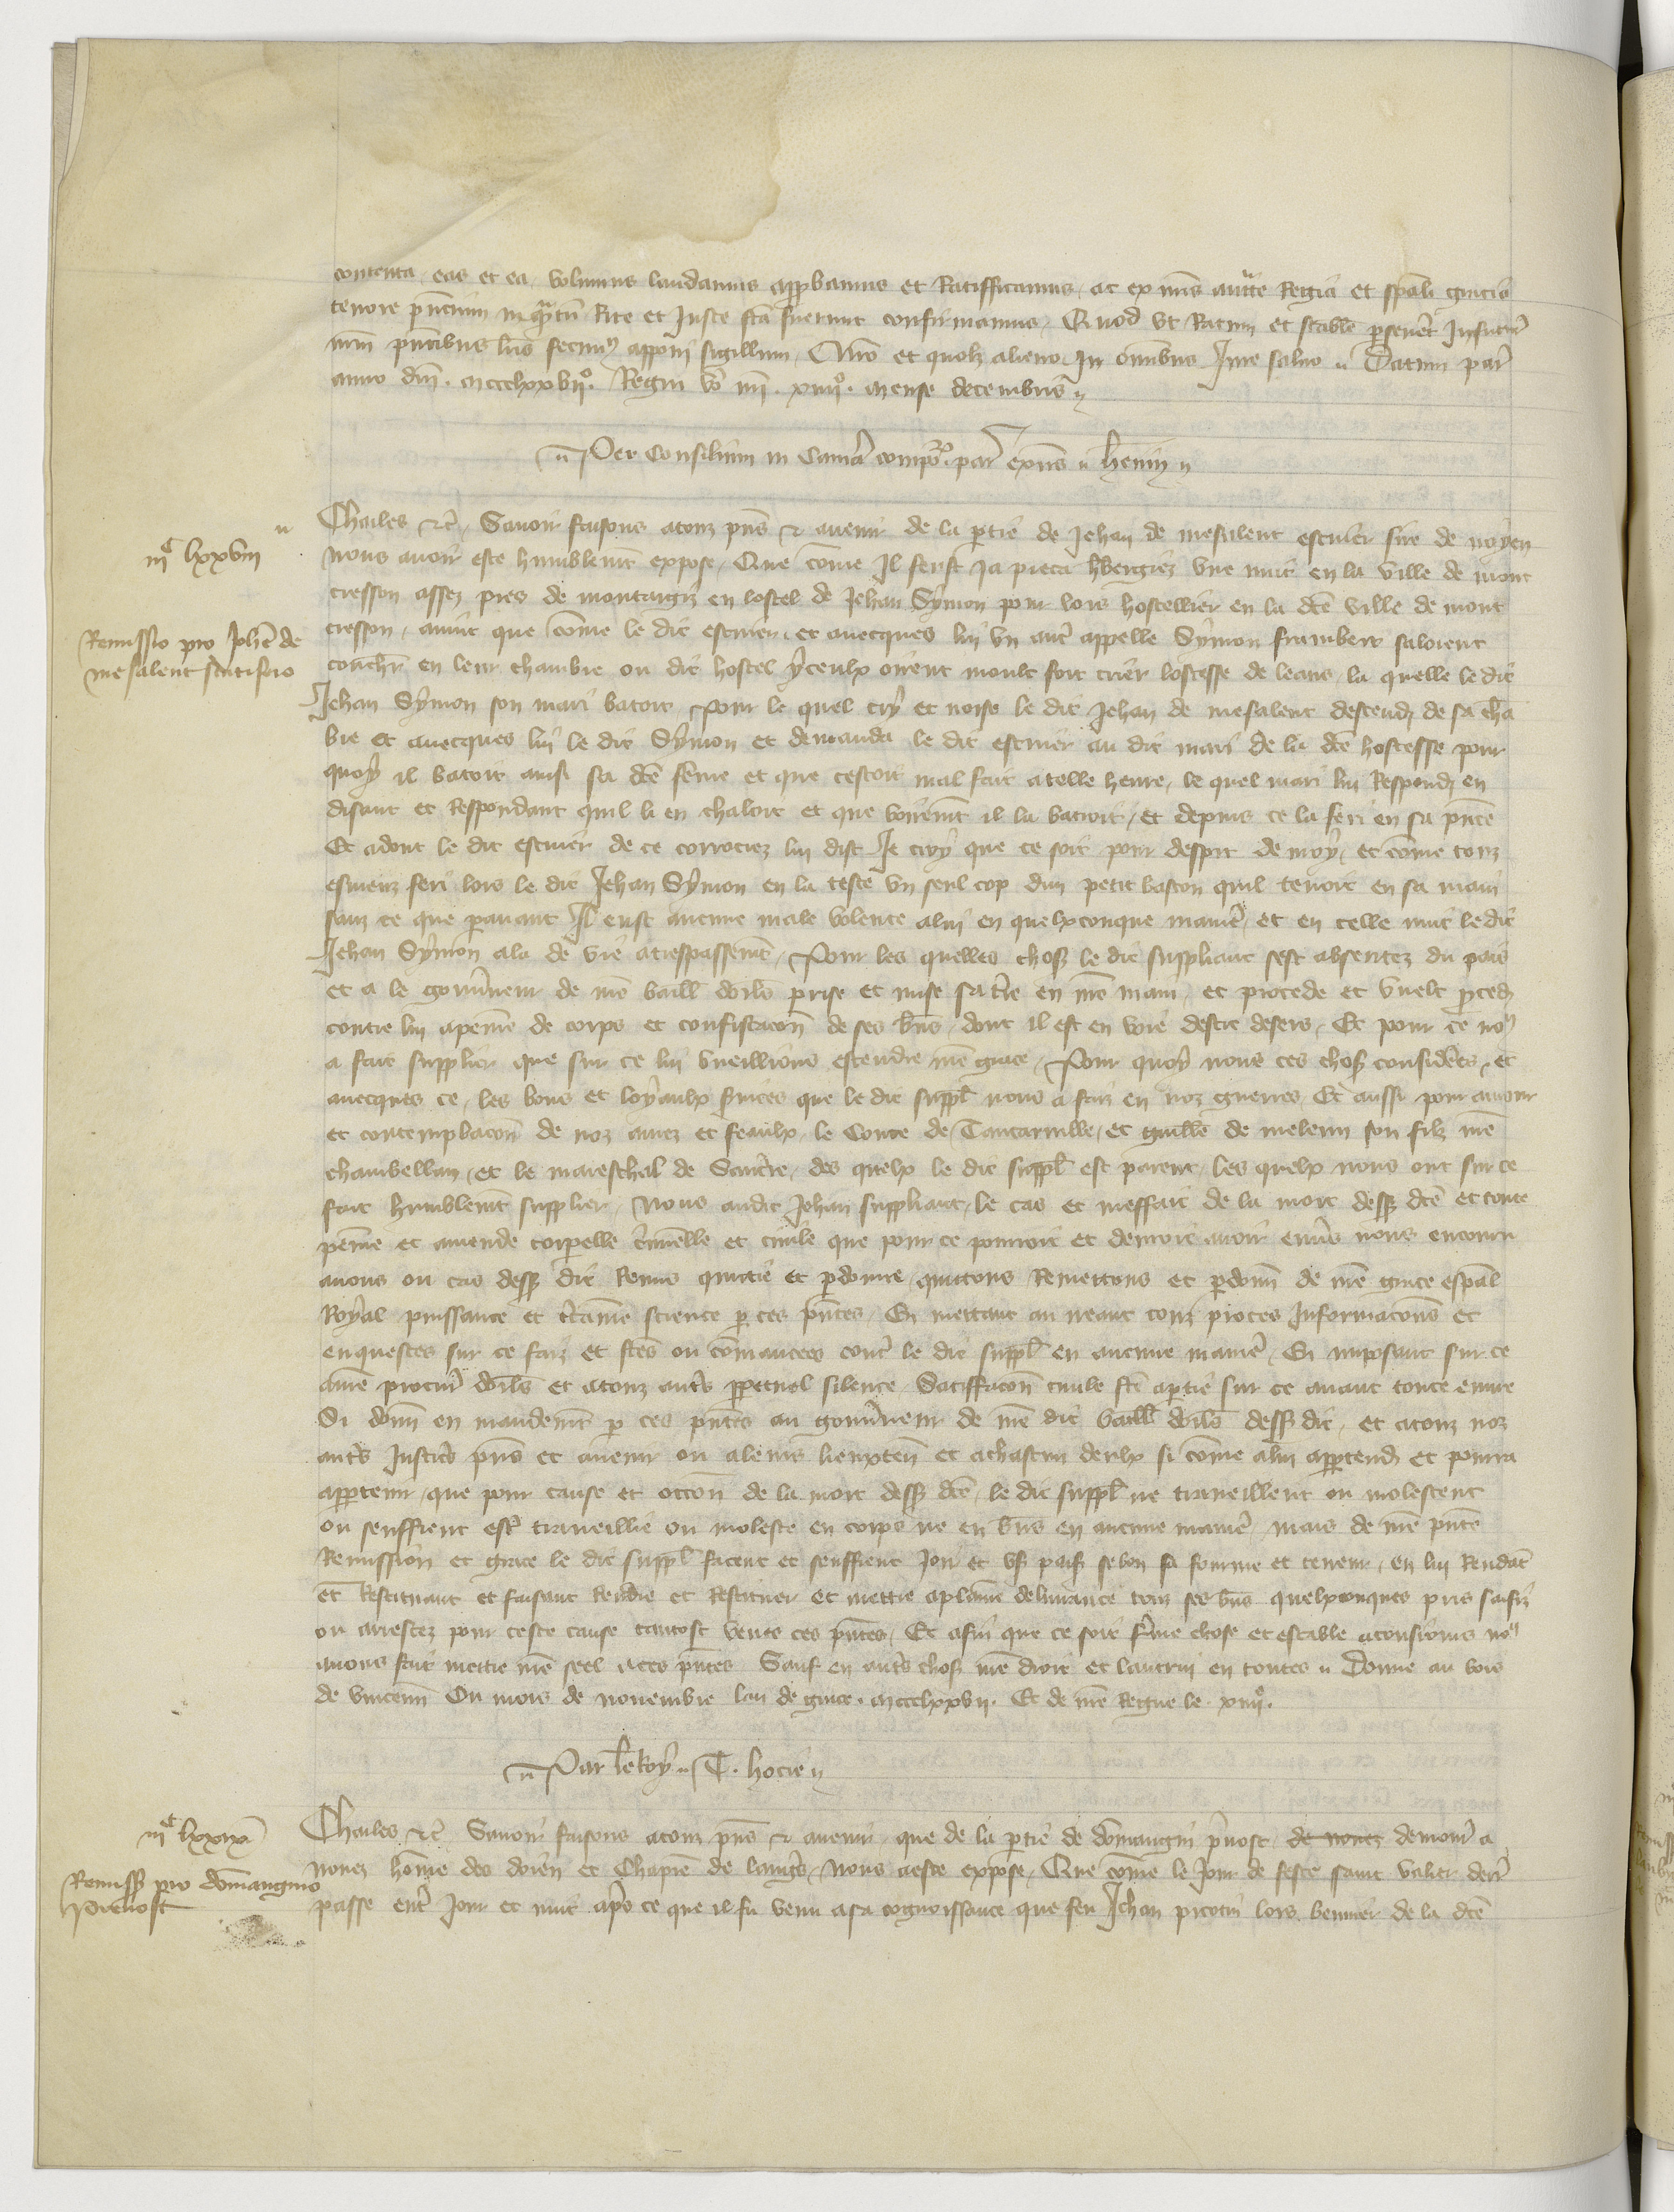 contenta eas et ea volumus laudamus appbamus et Ratifficamus ac ex nris auctte Regia et spali gracia
tenore pncium inquantu Rite et Juste fca fuerunt confirmamus Quod ut Ratum et stabile perseveret Infuturu
nrm pntibus lris fecimus apponi sigillum Nro et quolz alieno In omibus Jure salvo Datum par
anno dni mccclxxvii°. Regni vo nri xiiii°. mense decembris
Per Consilium in Camera compor par exns Henin
iiic lxxviii
Charles etc Savoir faisons atouz pns et avenir de la partie de Jehan de mesalent escuier sire de noyen
nous avoir este humblemt expose Que come Il feust Ja pieca hbergiez une nuit en la ville de mont
cresson assez pres de montargiz en lostel de Jehan Symon pour lors hostellier en la dce ville de mont
Remissio pro Johe de
mesalent scutifero
cresson avint que come le dit escuier et avecques lui un autre appelle Symon frambert saloient
couchr en leur chambre ou dit hostel yceulx oirent moult fort crier lostesse de leans la quelle le dit
Jehan Symon son mari batoit Pour le quel cry et noise le dit Jehan de mesalent descendi de sa cha
bre et avecques lui le dit Symon et demanda le dit escuier au dit mari de la dce hostesse pour
quoy il batoit ainsi sa dce feme et que cestoit mal fait atelle heure le quel mari lui Respondi en
disant et Respondant quil li en chaloit et que voiremt il la batroit et depuis ce la feri en sa pnce
Et adont le dit escuier de ce corrociez lui dist Je croy que ce soit pour despit de moy et come touz
esmeuz feri lors le dit Jehan Symon en la teste un seul cop dun petit baston quil tenoit en sa main
sanz ce que paravant Il eust aucune male volente alui en quelxconque maniere et en celle nuit le dit
Jehan Symon ala de vie atrespassemt Pour les quelles choses le dit suppliant sest absentez du pais
et a le gouverneur de nre baill dorls prise et mise sa tre en nre main et procede et vuelt proceder
contre lui apeine de corps et confiscacon de ses biens dont il est en voie destre desers Et pour ce nous
a fait supplier que sur ce lui vueillions estendre nre grace Pour quoy nous ces choses considerees et
avecques ce les bons et loyaulx services que le dit suppl nous a faiz en noz guerres Et aussi pour amour
et contemplacon de noz amez et feaulx le Conte de Tancarville et guille de meleun son filz nre
chambellan et le mareschal de Sancrre des quelx le dit suppl est parent les quelx nous ont sur ce
fait humblemt supplier Nous audit Jehan suppliant le cas et meffait de la mort dess dce et toute
peine et amende corpelle criminelle et civile que pour ce pourroit et devroit avoir envers nous encouru
avons ou cas dess dit Remis quictie et pardonne quictons Remettons et pdonn de nre grace espal
Royal puissance et certaine science p ces pntes En mettant au neant touz proces Informacons et
enquestes sur ce faiz et fces ou comancees contre le dit suppl en aucune maniere En imposant sur ce
anre procur dorls et atouz autres ppetuel silence Satiffacon civile fce aptie sur ce avant toute euvre
Si donn en mandemt p ces pntes au gouverneur de nre dit baill dorls dess dit et atouz noz
autres Justices pns et avenir ou aleurs lieuxten et achascun deulx si come alui apptendra et pourra
appartenir que pour cause et occon de la mort dess dce le dit suppl ne traveillent ou molestent
ou seuffrent estre traveillie ou moleste en corps ne en biens en aucune maniere mais de nre pnte
Remission et grace le dit suppl facent et seuffrent Joir et user paisiblement selon sa fourme et teneur en lui Rendant
et Restituant et faisant Rendre et Restituer et mettre aplaine delivrance touz ses biens quelxconques pris saisiz
ou arrestez pour ceste cause tantost veues ces pntes Et afin que ce soit ferme chose et estable atousjours nous
avons fait mettre nre seel aces pntes Sauf en autres choses nre droit et lautrui en toutes Donne au bois
de vincenn Ou mois de novembre lan de grace mccclxxvii. Et de nre Regne le xiiii°.
Par le Roy T. hocie
iiic lxxix
Charles etc Savoir faisons atouz pns et avenir que de la partie de domangin prvost de nonez demour a
Remiss pro domangino
prevost
nonez home des doien et Chapitre de langres Nous aeste expose Que come le Jour de feste saint valier derr
passe entre Jour et nuit apres ce que il fu venu asa cognoissance que feu Jehan picotin lors bennier de la dce